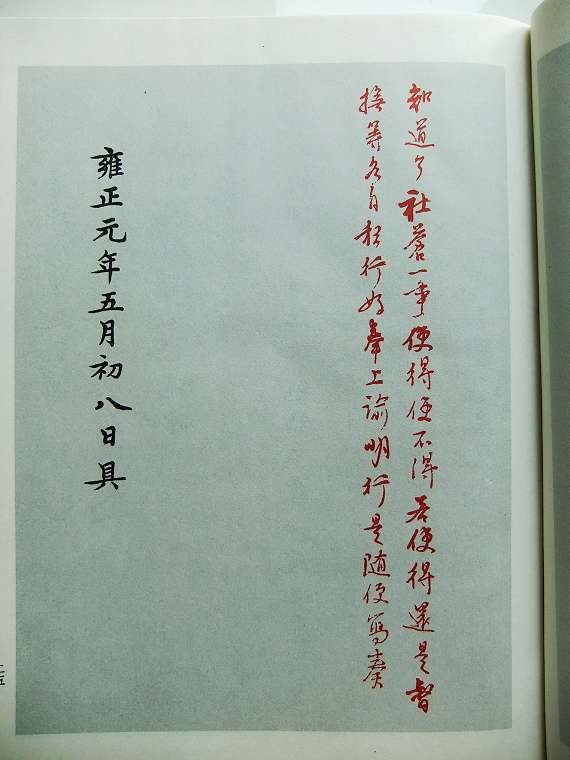 知道了社蒼一事便得便不得若便得還是督
撫等各自私行好奉上諭明行是随便寫奏
雍正元年五月初八日具